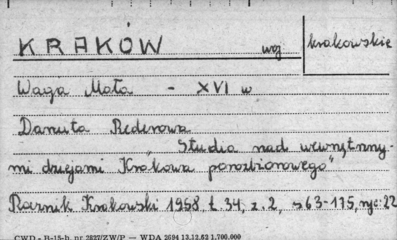 KRAKÓW woj krakowskie
Waga Mała - XVI w
Danuta Rederowa
"Studia nad wewnętrzny-
mi dziejami Krakowa porozbiorowego"
Rocznik Krakowski 1958, t. 34, z. 2, s 63-175, ryc: 22
CWD - B-15-h, nr 2827/ZW/P — WDA 2694 13.12.52 1.700.000